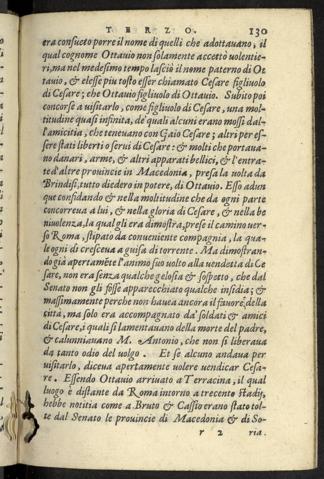 TERZO. 130
era consueto porre il nome di quelli che adottauano, il
qual cognome Ottauio non solamente accettò uolentie-
ri, ma nel medesimo tempo lasciò il nome paterno di Ot
tauio, & elesse piu tosto esser chiamato Cesare figliuolo
di Cesare; che Ottauio figliuolo di Ottauio. Subito poi
concorse a uisitarlo, come figliuolo di Cesare, una mol-
titudine quasi infinita, de' quali alcuni erano mossi dal-
l'amicitia, che teneuano con Gaio Cesare; altri per es-
sere stati liberti o serui di Cesare: & molti che portaua-
no danari, arme, & altri apparati bellici, & l'entra-
te d'altre prouincie in Macedonia, presa la uolta da
Brindisi, tutto diedero in potere, di Ottauio. Esso adun
que considando & nella moltitudine che da ogni parte
concorreua a lui, & nella gloria di Cesare, & nella be
niuolenza, la qual gli era dimostra, prese il camino uer-
so Roma, stipato da conueniente compagnia, la qua-
le ogni dì cresceua a guisa di torrente. Ma dimostran-
dogià apertamẽte l'animo suo uolto alla uendetta di Ce
sare, non era senza qualche gelosia & sospetto, che dal
Senato non gli fosse apparecchiato qualche insidia; &
massimamente perche non haueа ancora il fauore della
citta, ma solo era accompagnato da' soldati & amici
di Cesare, i quali si lamentauano della morte del padre,
& calunniauano M. Antonio, che non si liberaua
da tanto odio del uolgo. Et se alcuno andaua per
uisitarlo, diceua apertamente uolere uendicar Cesa-
re. Essendo Ottauio arriuato a Terracina, il qual
luogo è distante da Roma intorno a trecento stadij,
hebbe notitia come a Bruto & Cassio erano stato tol-
te dal Senato le prouincie di Macedonia & di So-
r 2 ria.